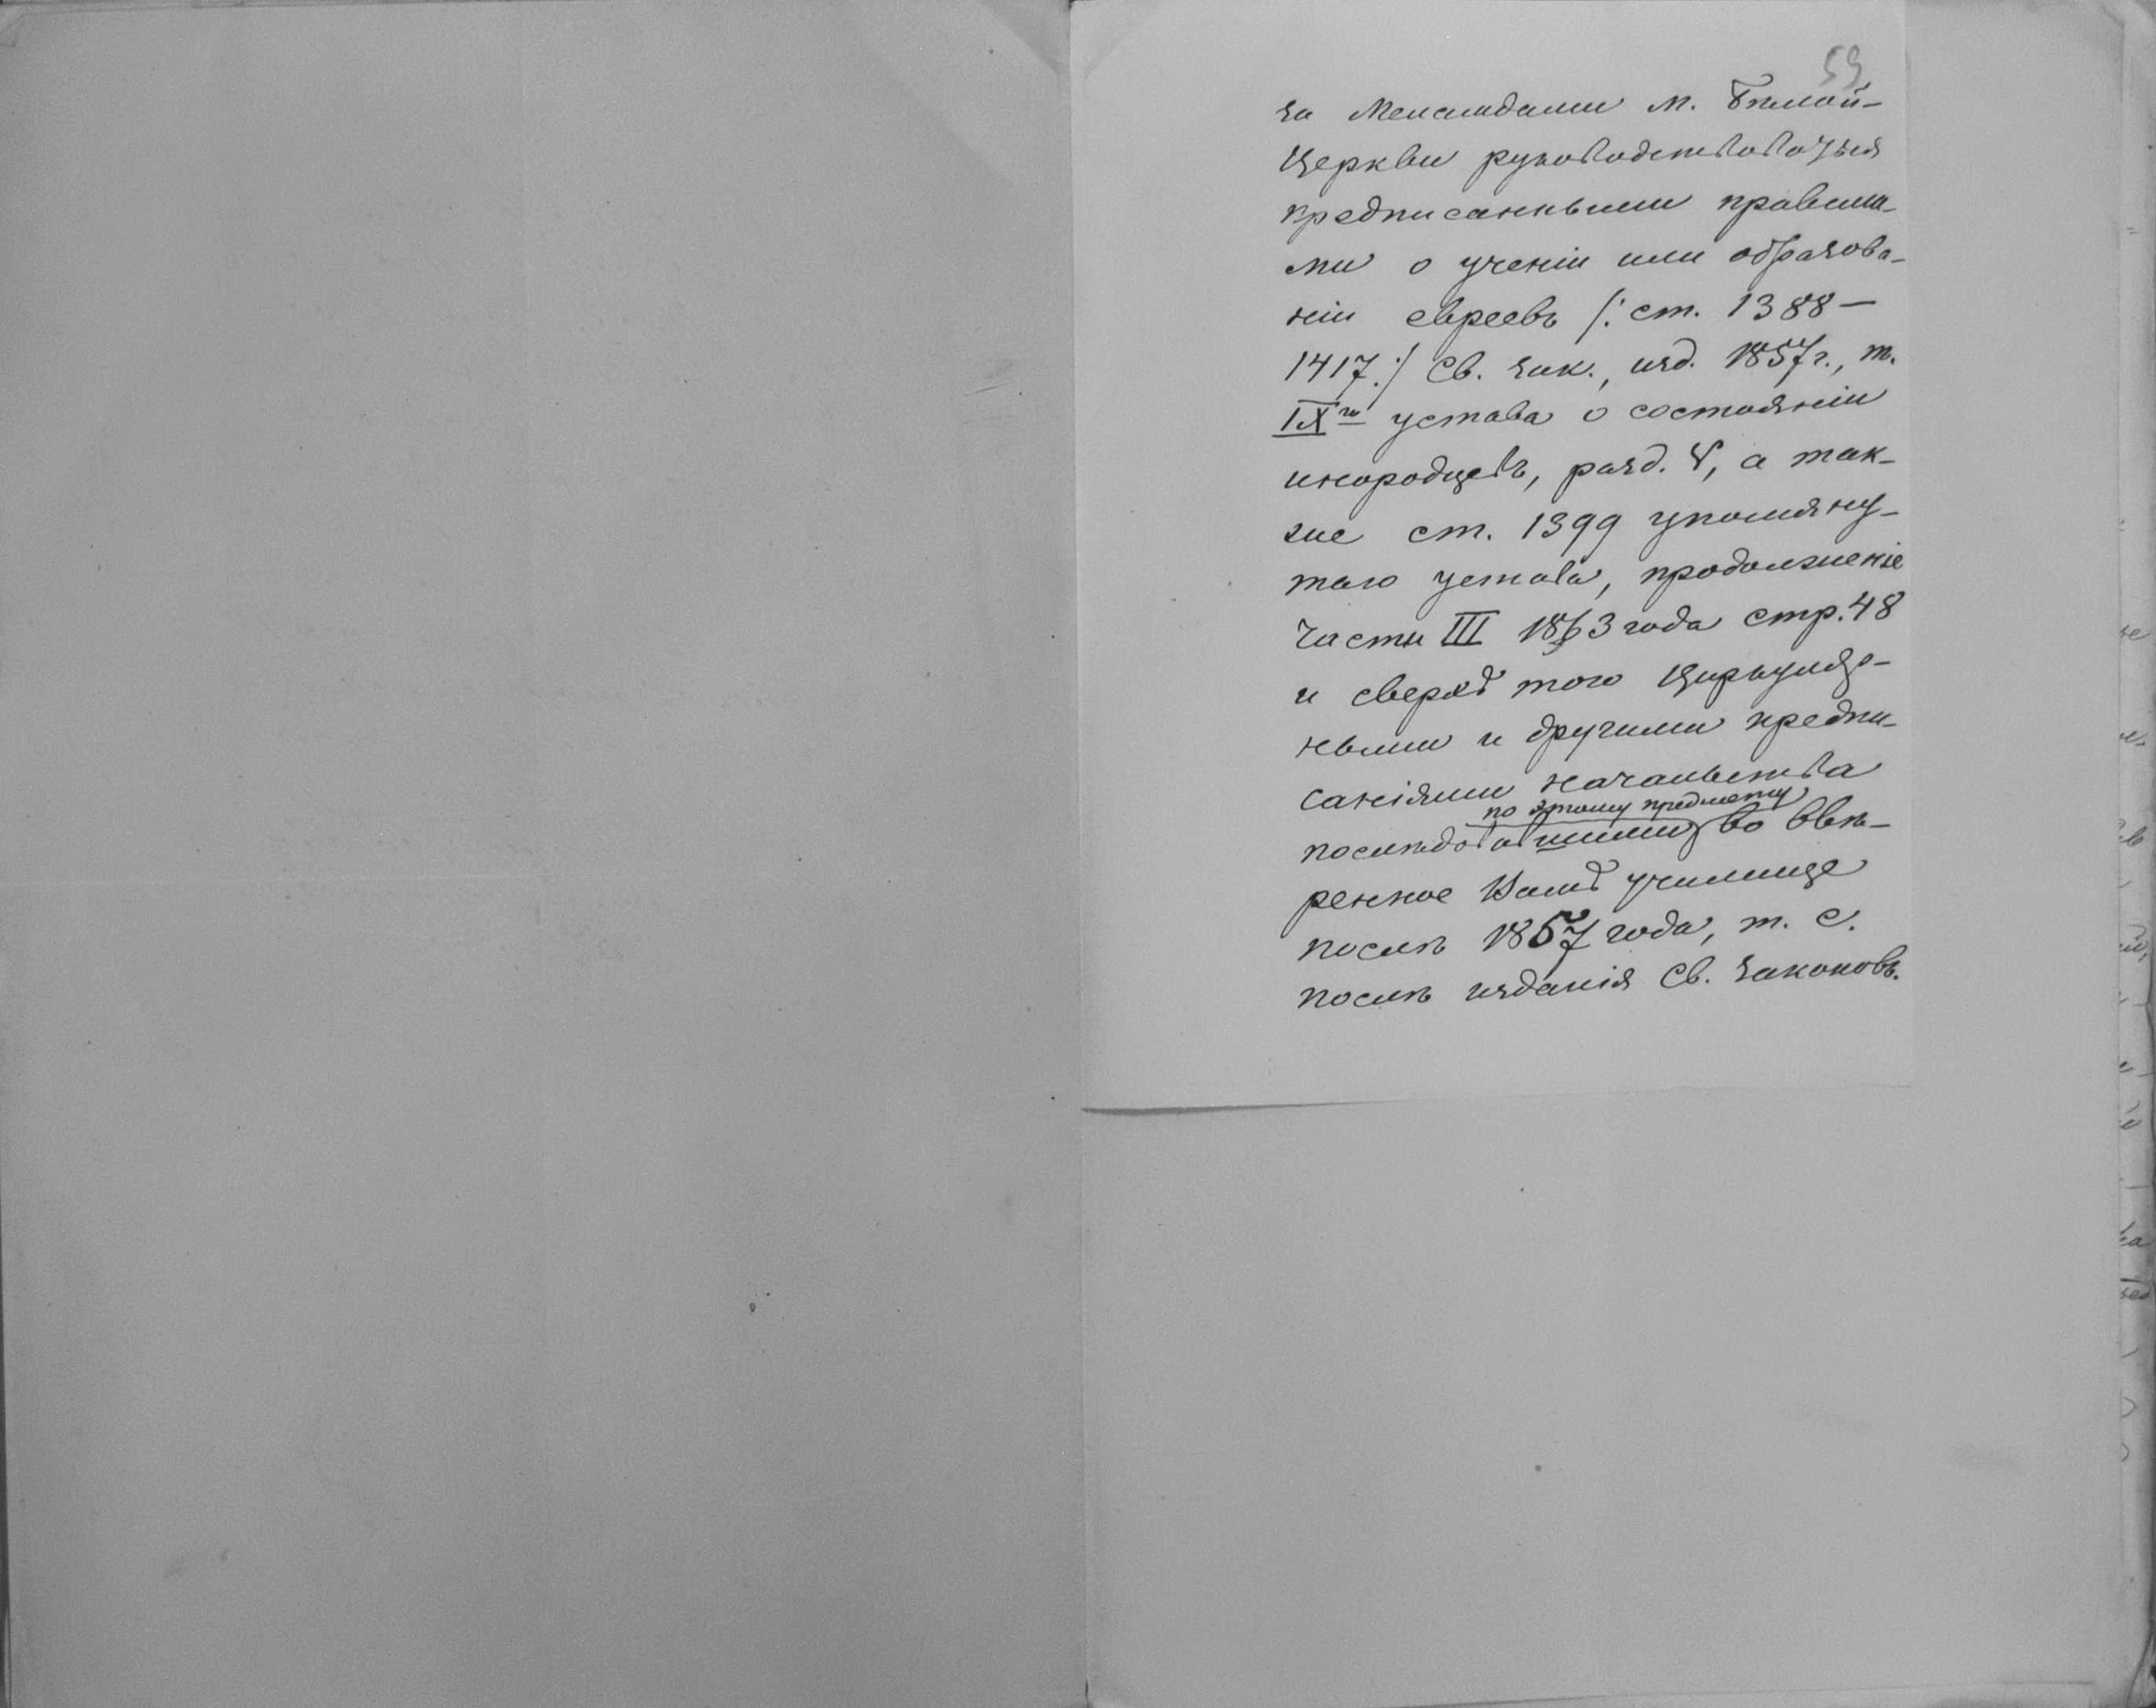 59
за Меламдами м. Бѣлой-
Церкви руководствоваться
предписанными правила-
ми о ученіи или образова-
ніи евреевъ /: ст. 1388 —
1417 :/ Св. зак., изд. 1857 г., т.
IXго устава о состояніи
инородцевъ, разд. V, а так-
же ст. 1399 упомяну-
таго устава, продолженіе
части III 1863 года стр. 48
и сверхъ того Циркуляр-
ными и другими предпи-
саніями начальства
по этому предмету
послѣдовавшими во ввѣ-
ренное Вамъ училище
послѣ 1857 года, т. е.
послѣ изданія Св. Законовъ.